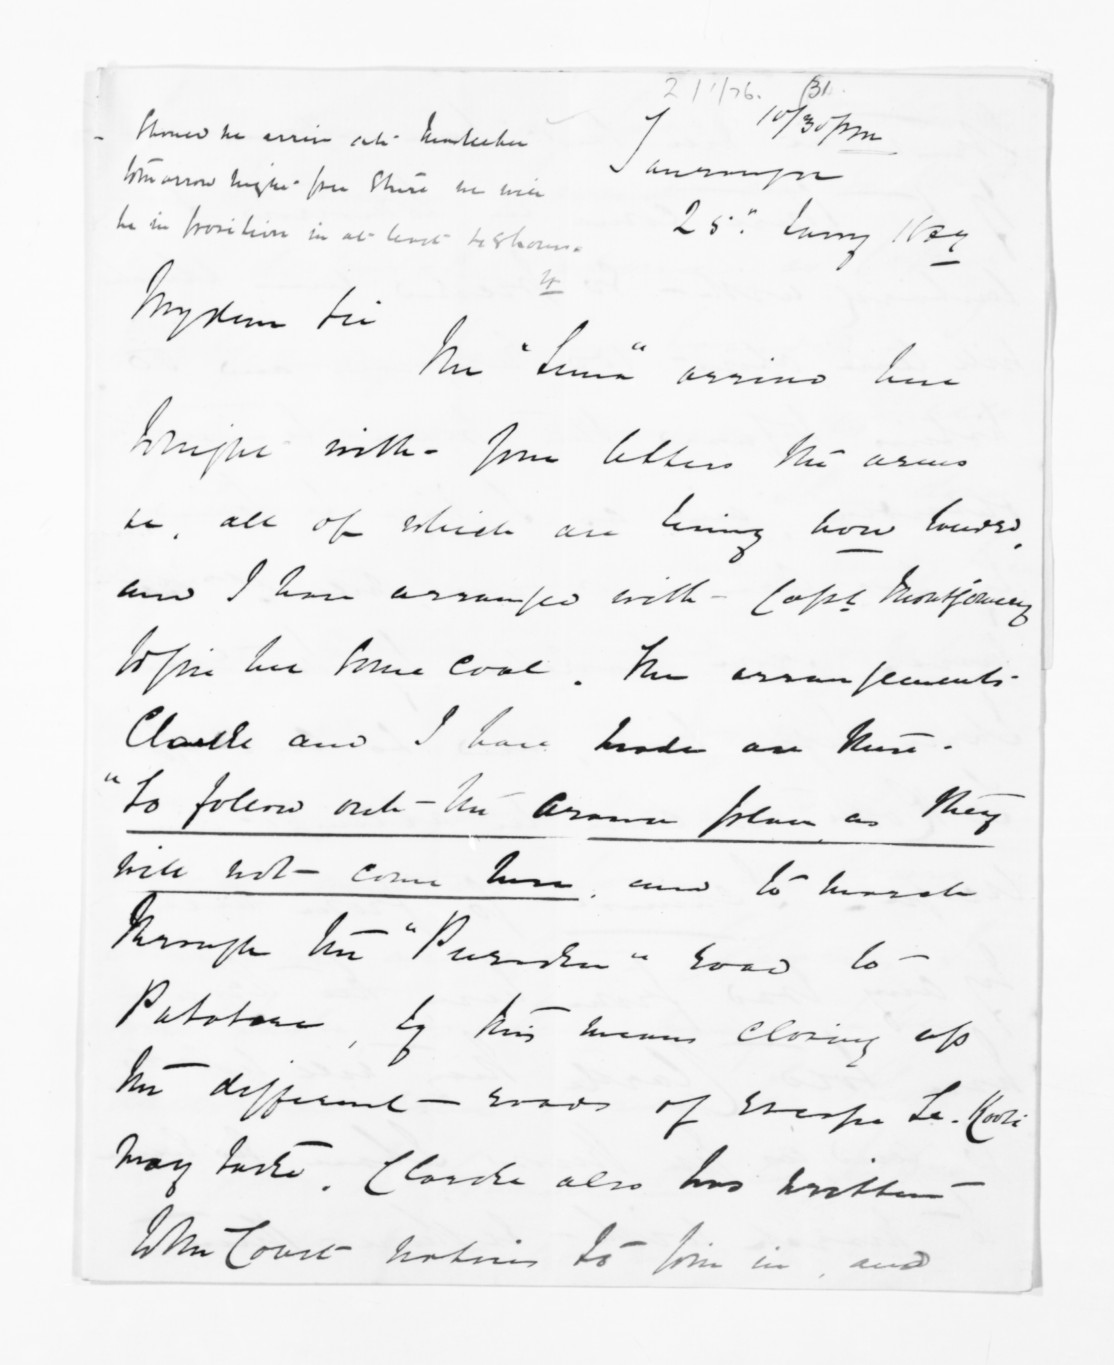 10/30 pm
Tauranga
25th Jany 1869
Should he arrive at
tomorrow night from there he will
be in position in at least 48 hours.
My dear Sir
The "Sturt" arrived here
tonight with your letters the arms
&c, all of which are being now landed,
and I have arranged with Capt Montgomery
to give her some coal. The arrangements
Clarke and I have made are these.
"To follow out the Arawa plan as they
will not come here, and to march
through the " " road to
Patetere, by this means closing up
the different roads of escape Te Kooti
may take. Clarke also has written
to the Coast natives to join in, and